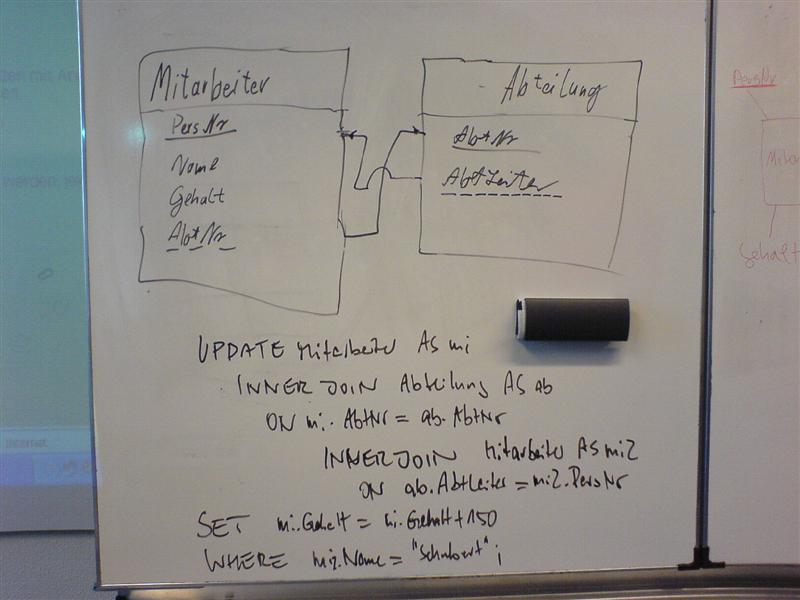 Mitarbeiter
PersNr
Name
Gehalt
AbtNr
Abteilung
AbtNr
AbtLeiter
UPDATE Mitarbeiter AS mi
INNER JOIN Abteilung AS ab
ON mi.AbtNr = ab.AbtNr
INNER JOIN Mitarbeiter AS mi2
ON ab.AbtLeiter = mi2.PersNr
SET mi.Gehalt = mi.Gehalt + 150
WHERE mi2.Name = "Schubert";
PersNr
Mita
Gehalt
werden,
Internet